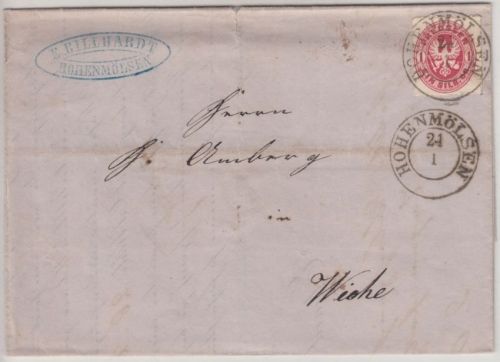 E. BILLHARDT
HOHENMÖLSEN
HOHENMÖLSEN
EIN SILB. GR.
HOHENMÖLSEN
21
1
Herrn
Amberg
in
Wiehe